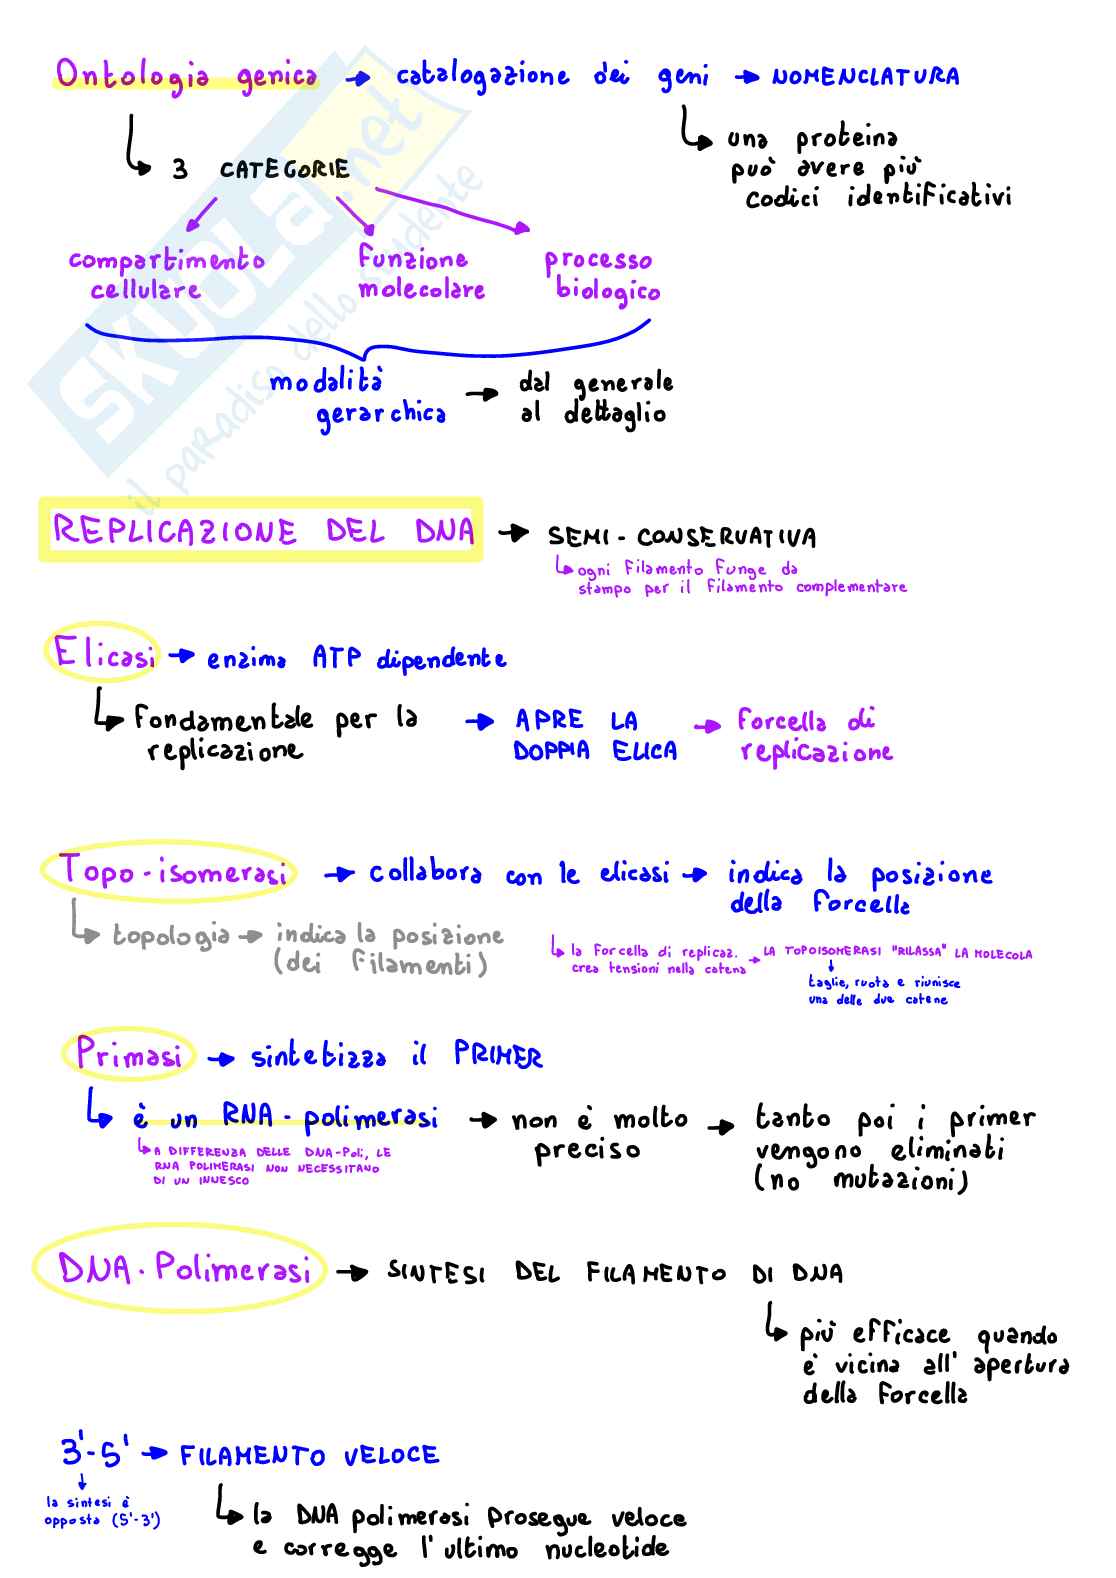 Ontologia genica → catalogazione dei geni → NOMENCLATURA
una proteina
può avere più
codici identificativi
3 CATEGORIE
compartimento
cellulare
funzione
molecolare
processo
biologico
modalità
gerarchica → dal generale
al dettaglio
SKUOLA.net
il paradiso dello studente
REPLICAZIONE DEL DNA → SEMI-CONSERVATIVA
ogni filamento funge da
stampo per il filamento complementare
Elicasi → enzima ATP dipendente
fondamentale per la
replicazione → APRE LA
DOPPIA ELICA → forcella di
replicazione
Topo-isomerasi → collabora con le elicasi → indica la posizione
della forcella
topologia → indica la posizione
(dei filamenti)
la forcella di replicaz.
crea tensioni nella catena → LA TOPOISOMERASI "RILASSA" LA MOLECOLA
taglie, ruota e riunisce
una delle due catene
Primasi → sintetizza il PRIMER
è un RNA-polimerasi → non è molto
preciso → tanto poi i primer
vengono eliminati
(no mutazioni)
A DIFFERENZA DELLE DNA-Poli, LE
RNA POLIMERASI NON NECESSITANO
DI UN INNESCO
DNA-Polimerasi → SINTESI DEL FILAMENTO DI DNA
più efficace quando
è vicina all'apertura
della forcella
3'-5' → FILAMENTO VELOCE
la sintesi è
opposta (5'-3')
la DNA polimerasi prosegue veloce
e corregge l'ultimo nucleotide